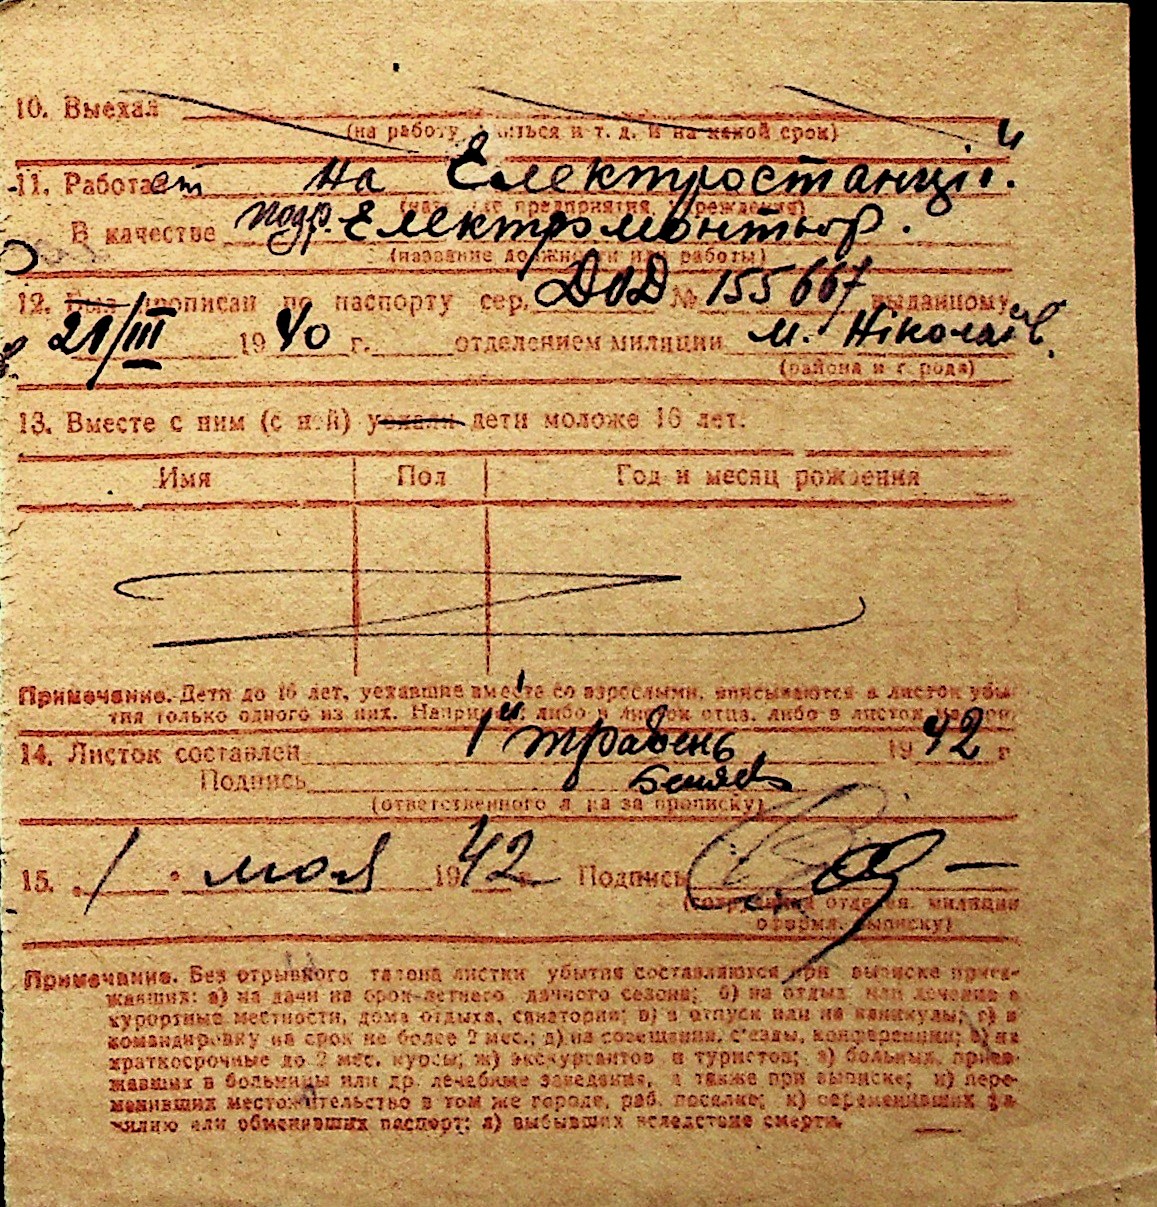 10. Выехал
(на работу, учиться и т. д. и на какой срок)
11. Работает на Електростанції.
(название предприятия, учреждения)
В качестве подр. Електромонтьор.
(название должности или работы)
12. Был прописан по паспорту сер. ДОД № 155667 выданному
21/III 1940 г. отделением милиции м. Ніколаїв.
(района и города)
13. Вместе с ним (с ней) уехали дети моложе 16 лет.
Имя Пол Год и месяц рождения
Примечание. Дети до 16 лет, уехавшие вместе со взрослыми, вписываются в листок убы-
тия только одного из них. Например либо в листок отца, либо в листок матери.
14. Листок составлен 1 травень 1942 г
Подпись
(ответственного лица за прописку)
15. 1 " мая 1942 г. Подпись
(сотрудника отделен. милиции
оформ. выписку)
Примечание. Без отрывного талона листки убытия составляются при выписке приез-
жавших: а) на дачи на срок летнего дачного сезона; б) на отдых или лечение в
курортные местности, дома отдыха, санатории; в) в отпуск или на каникулы; г) в
командировку на срок не более 2 мес.; д) на совещания, съезды, конференции; е) на
краткосрочные до 2 мес. курсы; ж) экскурсантов и туристов; з) больных, приез-
жавших в больницы или др. лечебные заведения, а также при выписке; и) пере-
менивших местожительство в том же городе, раб. поселке; к) переменивших фа-
милию или обменявших паспорт; л) выбывших вследствие смерти.